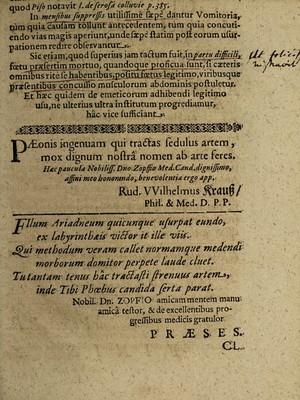 quod Piso notavit l. de serosa colluvie p. 385.
In mensibus suppressis utilissimè sæpè dantur Vomitoria,
tùm quia causam tollunt antecedentem, tùm quia concuti-
endo vias magis aperiunt, unde sæpè statim post eorum usur-
pationem redire observantur.
Sic etiam, quod superius jam tactum fuit, in partu difficili,
fœtu præsertim mortuo, quandoque proficua sunt, si cæteris
omnibus ritè se habentibus, positu fœtus legitimo, viribusque
præsentibus concussio musculorum abdominis postuletur.
Et hæc quidem de emeticorum adhibendi legitimo
usu, ne ulterius ultra institutum progrediamur,
hâc vice sufficiant.
Ut
PÆonis ingenuam qui tractas sedulus artem,
mox dignum nostrâ nomen ab arte feres.
Hæc paucula Nobiliss. Dno. Zopfio Med. Cand. dignissimo,
affini meo honorando, benevolentiæ ergo app.
Rud. VVilhelmus Krauß/
Phil. & Med. D. P. P.
FIlum Ariadneum quicunque usurpat eundo,
ex labyrinthæis victor it ille viis.
Qui methodum veram callet normamque medendi
morborum domitor perpete laude cluet.
Tu tantam tenus hâc tractasti strenuus artem,
inde Tibi Phœbus candida serta parat.
Nobil. Dn. ZOPFIO amicam mentem manu
amicâ testor, & de excellentibus pro-
gressibus medicis gratulor
PRÆSES.
CL.